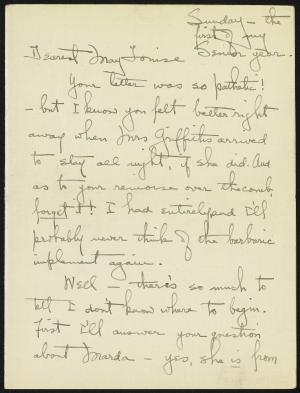 Sunday — the
first of my
Senior year.
Dearest May Louise
Your letter was so pathetic!
— but I know you felt better right
away when Mrs Griffiths arrived
to stay all night, if she did. And
as to your remorse over the comb,
forget it! I had entirely and I'll
probably never think of the barbaric
implement again.
Well — there's so much to
tell I don't know where to begin.
First I'll answer your question
about Marda — yes, she is from